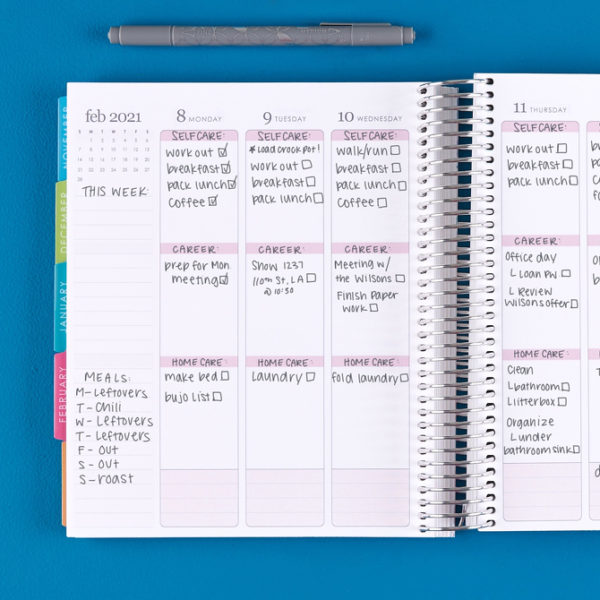 feb 2021
S M T W T F S
1 2 3 4 5 6
7 8 9 10 11 12 13
14 15 16 17 18 19 20
21 22 23 24 25 26 27
28
THIS WEEK:
MEALS:
M-Leftovers
T-Chili
W-Leftovers
T-Leftovers
F-out
S-out
S-roast
NOVEMBER
DECEMBER
JANUARY
FEBRUARY
8 MONDAY
SELFCARE:
work out
breakfast
pack lunch
coffee
CAREER:
prep for Mon.
meeting
HOMECARE:
make bed
bujo list
9 TUESDAY
SELFCARE:
*Load crock pot!
work out
breakfast
pack lunch
CAREER:
Show 1237
110th St, LA
@ 10:30
HOMECARE:
Laundry
10 WEDNESDAY
SELFCARE:
walk/run
breakfast
pack lunch
coffee
CAREER:
Meeting w/
the Wilsons
Finish Paper
work
HOMECARE:
fold laundry
11 THURSDAY
SELFCARE:
work out
breakfast
pack lunch
CAREER:
Office day
L Loan PW
L Review
Wilsons offer
HOMECARE:
Clean
L bathroom
L litterbox
Organize
L under
bathroom sink